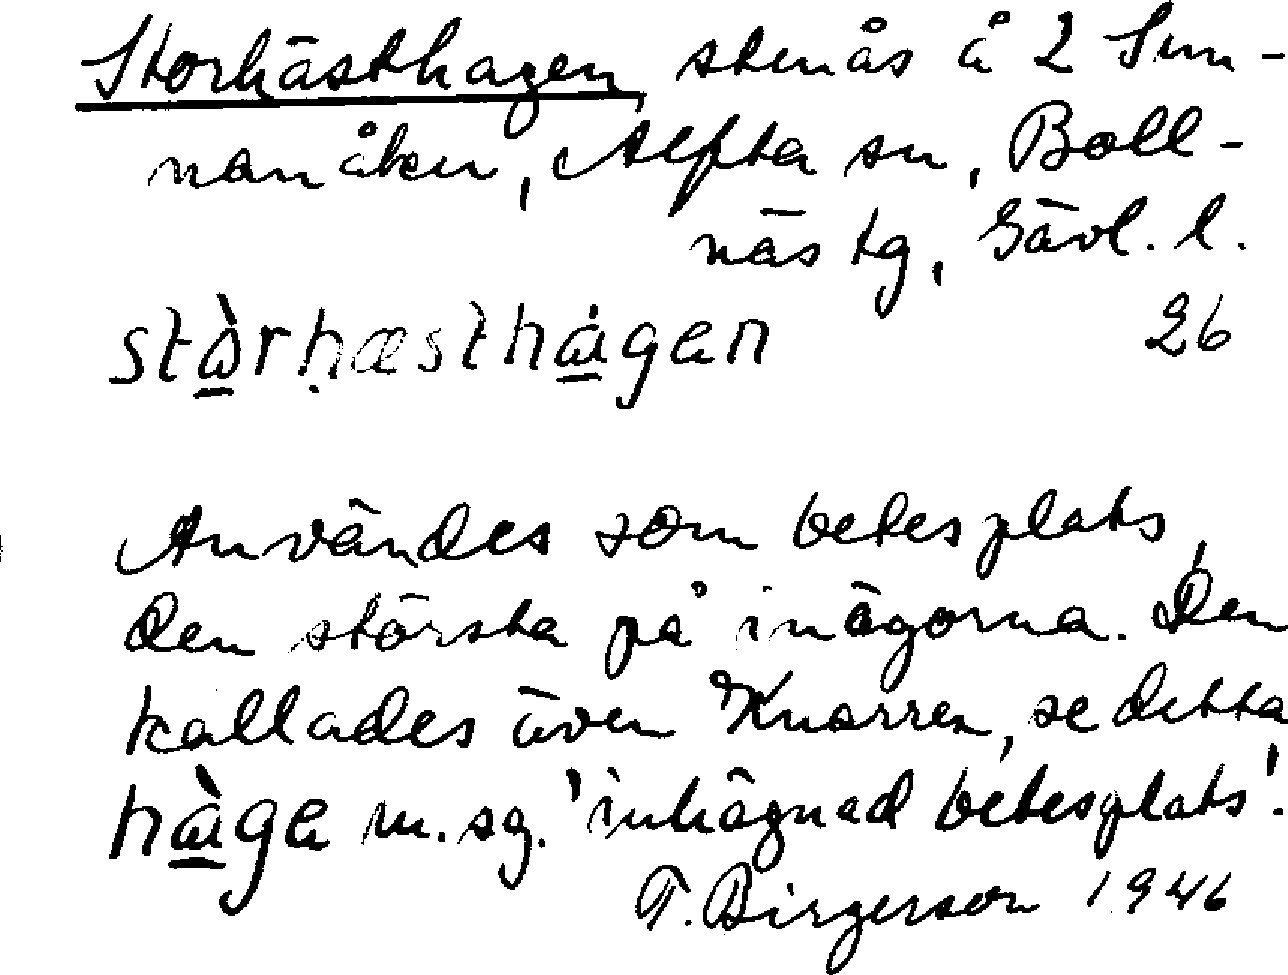 Storhästhagen stenås å 2 Sun-
nanåker, Alfta sn, Boll-
näs tg, Gävl. l.
stɷ̀rḥæsthɑ̀gen 26
Användes som betesplats,
den största på inägorna. Den
kallades även Knarren, se detta
hɑ̀ge m. sg. 'inhägnad betesplats'.
T. Birgerson 1946